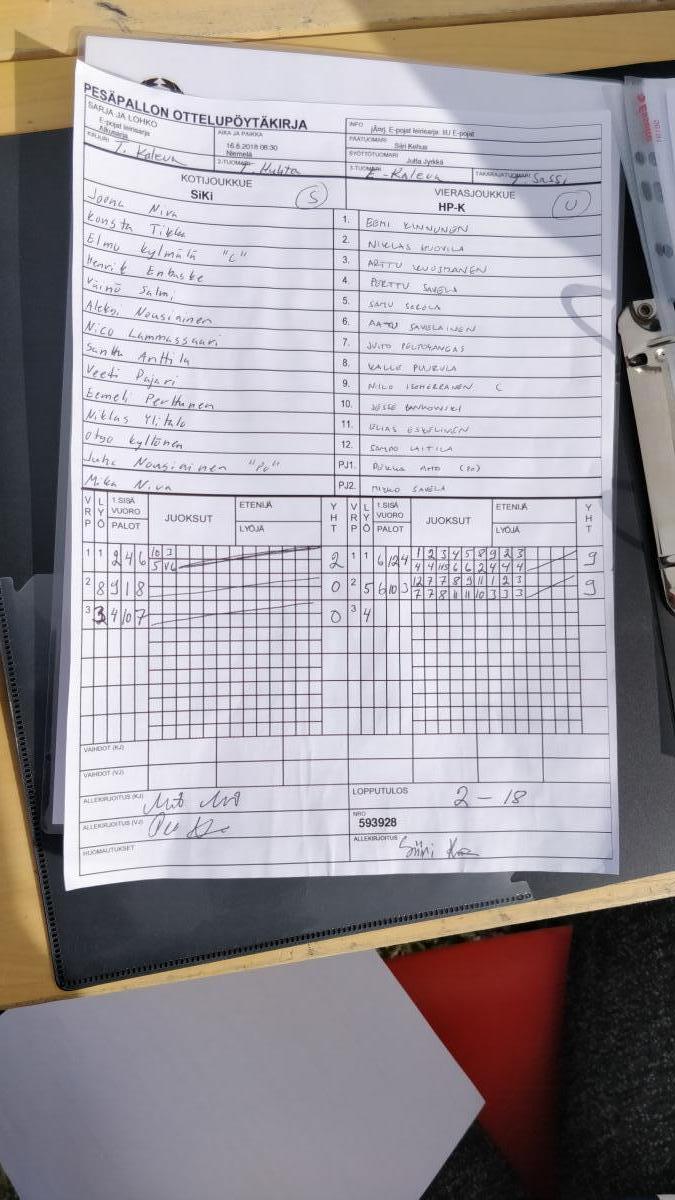 PESÄPALLON OTTELUPÖYTÄKIRJA
SARJA JA LOHKO
E-pojat leirisarja
Alkusarja
AIKA JA PAIKKA
16.6.2018 08:30
Niemelä
INFO
PÄÄTUOMARI
Siiri Kehus
SYÖTTÖTUOMARI
Jutta Jyrkkä
KIRJURI
T. Kaleva
2-TUOMARI
T. Huhta
3-TUOMARI
E-Kaleva
TAKARAJATUOMARI
T. Sassi
KOTIJOUKKUE
SiKi
S
VIERASJOUKKUE
HP-K
U
Joona Niva
1. EEMI KINNUNEN
Konsta Tikka
2. NIKLAS HUOVILA
Elmo Kylmälä "C"
3. ARTTU KUUSMANEN
Henrik Enbuske
4. PERTTU SAVELA
Väinö Salmi
5. SAMU SAROLA
Aleksi Nousiainen
6. AATU SAVELAINEN
Nico Lammassaari
7. JUITO PELTOKANGAS
Santtu Anttila
8. KALLE PUURULA
Veeti Pajari
9. NIILO ISOHERRANEN C
Eemeli Perttunen
10. JESSE
Niklas Ylitalo
11. ELIAS ESKELINEN
Otso Kyllönen
12. SAMPO LAITILA
Juha Nousiainen "PJ"
PJ1. PUKKA AHO
Mika Niva
PJ2. MIKKO SAVELA
VRP LYÖ 1.SISÄ VUORO PALOT JUOKSUT ETENIJÄ LYÖJÄ YHT VRP LYÖ 1.SISÄ VUORO PALOT JUOKSUT ETENIJÄ LYÖJÄ YHT
1 1 2 4 6 10 3 2 1 1 6 12 4 1 2 3 4 5 8 9 2 3 9
4 4 6 6 2 4 4 4
2 8 9 1 8 0 2 5 6 10 3 12 7 7 8 9 11 1 2 3 9
7 7 8 11 11 10 3 3 3
3 3 4 10 7 0 3 4
VAIHDOT (KJ)
VAIHDOT (VJ)
ALLEKIRJOITUS (KJ)
LOPPUTULOS
2 - 18
ALLEKIRJOITUS (VJ)
NRO
593928
HUOMAUTUKSET
ALLEKIRJOITUS
Siiri